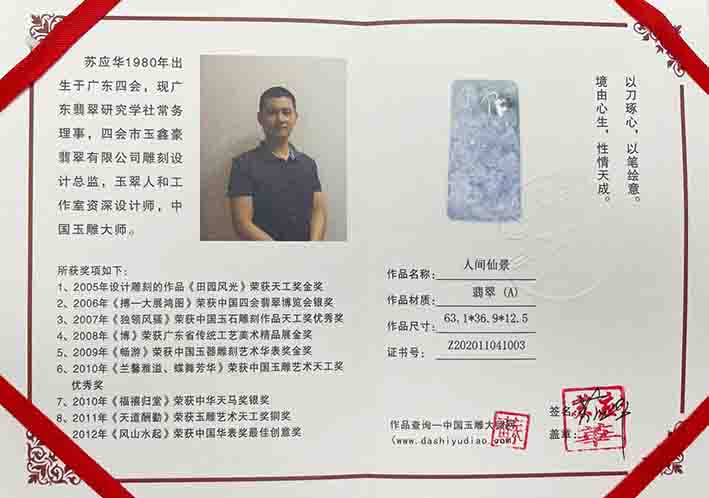 苏应华1980年出
生于广东四会，现广
东翡翠研究学社常务
理事，四会市玉鑫豪
翡翠有限公司雕刻设
计总监，玉翠人和工
作室资深设计师，中
国玉雕大师。
所获奖项如下：
1、2005年设计雕刻的作品《田园风光》荣获天工奖金奖
2、2006年《搏一大展鸿图》荣获中国四会翡翠博览会银奖
3、2007年《独领风骚》荣获中国玉石雕刻作品天工奖优秀奖
4、2008年《博》荣获广东省传统工艺美术精品展金奖
5、2009年《畅游》荣获中国玉器雕刻艺术华表奖金奖
6、2010年《兰馨雅溢、蝶舞芳华》荣获中国玉雕艺术天工奖
优秀奖
7、2010年《福禧归堂》荣获中华天马奖银奖
8、2011年《天道酬勤》荣获玉雕艺术天工奖铜奖
2012年《风山水起》荣获中国华表奖最佳创意奖
以刀琢心，以笔绘意。
境由心生，性情天成。
作品名称：人间仙景
作品材质：翡翠（A）
作品尺寸：63.1*36.9*12.5
证书号：Z202011041003
作品查询一中国玉雕大师网
(www.dashiyudiao.com)
签名：
盖章：